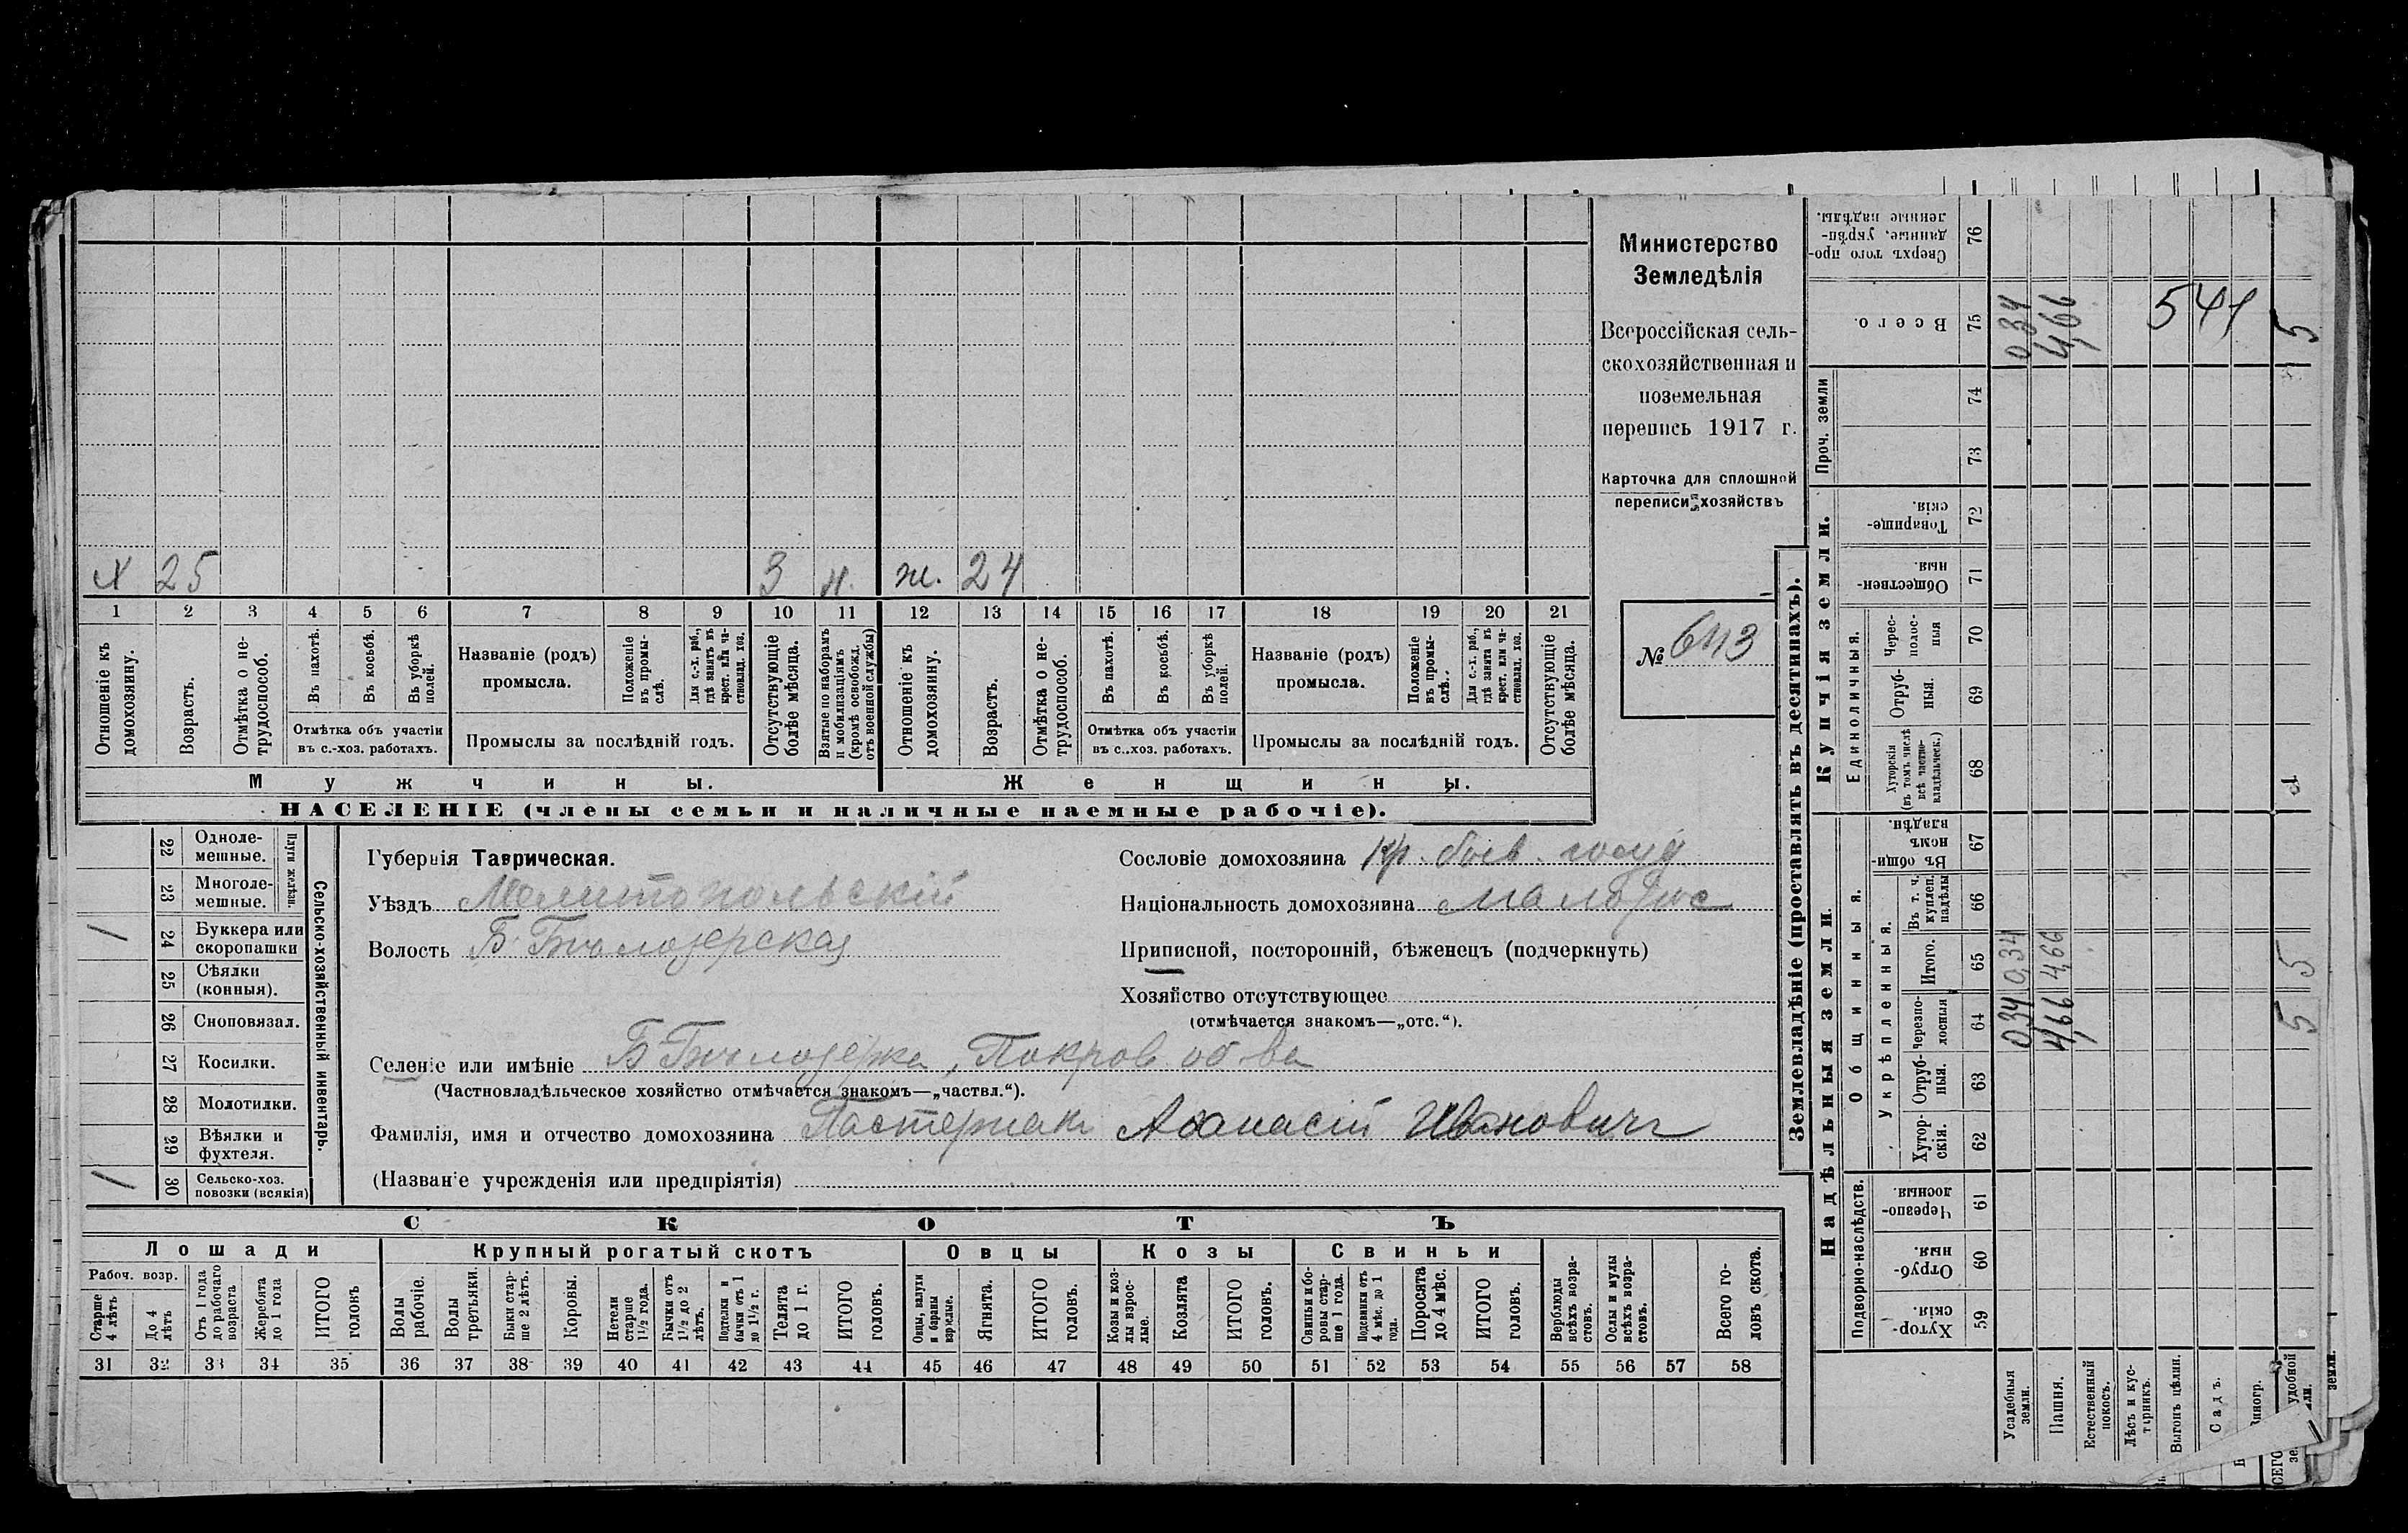 Министерство
Земледѣлія
Всероссійская сель-
скохозяйственная и
поземельная
перепись 1917 г.
Карточка для сплошной
переписи хозяйствъ
№ 643
х 25 3 н. ж. 24
1 2 3 4 5 6 7 8 9 10 11 12 13 14 15 16 17 18 19 20 21
Отношеніе къ домохозяину.
Возрастъ.
Отмѣтка о не-
трудоспособ.
Въ пахотѣ.
Въ косьбѣ.
Въ уборкѣ полей.
Отмѣтка объ участіи
въ с.-хоз. работахъ.
Названіе (родъ)
промысла.
Положеніе въ промы-
слѣ.
Для с.-х. раб., гдѣ занятъ въ крест. или ча-
стновлад. хоз.
Промыслы за послѣдній годъ.
Отсутствующіе болѣе мѣсяца.
Взятые по наборамъ и мобилизаціямъ (кромѣ освобожд. отъ военной службы)
Отношеніе къ домохозяину.
Возрастъ.
Отмѣтка о не-
трудоспособ.
Въ пахотѣ.
Въ косьбѣ.
Въ уборкѣ полей.
Отмѣтка объ участіи
въ с..хоз. работахъ.
Названіе (родъ)
промысла.
Положеніе въ промы-
слѣ..
Для с.-х. раб., гдѣ занята въ крест. или ча-
стновлад. хоз.
Промыслы за послѣдній годъ.
Отсутствующіе болѣе мѣсяца.
Мужчины. Женщины.
НАСЕЛЕНІЕ (члены семьи и наличные наемные рабочіе).
Сельско-хозяйственный инвентарь.
Плуги желѣзн.
22 Одноле-
мешные.
23 Многоле-
мешные.
1 24 Буккера или
скоропашки
25 Сѣялки
(конныя).
26 Сноповязал.
27 Косилки.
28 Молотилки.
29 Вѣялки и
фухтеля.
1 30 Сельско-хоз.
повозки (всякія)
Губернія Таврическая.
Уѣздъ Мелитопольскій
Волость Б Бѣлозерская
Сословіе домохозяина Кр. быв. госуд
Національность домохозяина малорос
Приписной, посторонній, бѣженецъ (подчеркнуть)
Хозяйство отсутствующее
(отмѣчается знакомъ—„отс.“).
Селеніе или имѣніе Б Бѣлозерка, Покров. об-ва
(Частновладѣльческое хозяйство отмѣчается знакомъ—„частвл.“).
Фамилія, имя и отчество домохозяина Пастернакъ Афанасій Ивановичъ
(Названіе учрежденія или предпріятія)
СКОТЪ
Лошади Крупный рогатый скотъ Овцы Козы Свиньи
Рабоч. возр.
Старше 4 лѣтъ
До 4 лѣтъ
Отъ 1 года до рабочаго возраста
Жеребята до 1 года
ИТОГО головъ
Волы рабочіе.
Волы третьяки.
Быки стар-
ше 2 лѣтъ.
Коровы.
Нетели старше 1½ года.
Бычки отъ 1½ до 2 лѣтъ.
Подтелки и бычки отъ 1 до 1½ г.
Телята до 1 г.
ИТОГО головъ.
Овцы, валухи и бараны взрослые.
Ягнята.
ИТОГО головъ.
Козы и коз-
лы взрос-
лые.
Козлята
ИТОГО головъ.
Свиньи и бо-
ровы стар-
ше 1 года.
Подсвинки отъ 4 мѣс. до 1 года.
Поросята до 4 мѣс.
ИТОГО головъ.
Верблюды всѣхъ возра-
стовъ.
Ослы и мулы всѣхъ возра-
стовъ.
Всего го-
ловъ скота.
31 32 33 34 35 36 37 38 39 40 41 42 43 44 45 46 47 48 49 50 51 52 53 54 55 56 57 58
Землевладѣніе (проставлять въ десятинахъ).
Купчія земли.
Надѣльныя земли.
Сверхъ того про-
данные, укрѣп-
ленные надѣлы. 76
Всего. 75 0,34 4,66 541 5
Проч. земли
74
73
Товарище-
скія. 72
Обществен-
ныя. 71
Единоличныя.
Черес-
полос-
ныя 70
Отруб-
ныя. 69
Хуторскія (въ томъ числѣ всѣ частно-
владѣльческ.) 68
Общинныя.
Въ общин-
номъ владѣн. 67
Укрѣпленныя.
Въ т. ч. куплен. надѣлы 66
Итого. 65 0,34 4,66 5
Черезпо-
лосныя 64 0,34 4,66 5
Отруб-
ныя. 63
Хутор-
скія. 62
Подворно-наслѣдств.
Черезпо-
лосныя. 61
Отруб-
ныя. 60
Хутор-
скія. 59
Усадебныя земли.
Пашня.
Естественный покосъ.
Лѣсъ и кус-
тарникъ.
Выгонъ цѣлин.
Садъ.